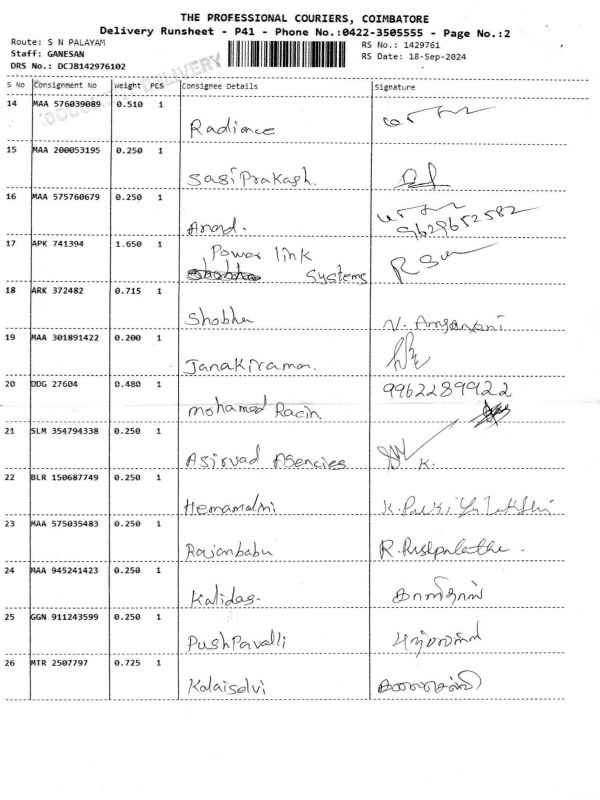 THE PROFESSIONAL COURIERS, COIMBATORE
Delivery Runsheet - P41 - Phone No.:0422-3505555 - Page No.:2
Route: S N PALAYAM
RS No.: 1429761
Staff: GANESAN
RS Date: 18-Sep-2024
DRS No.: DCJB142976102
DELIVERY
S No Consignment No Weight PCS Consignee Details Signature
14 MAA 576039089 0.510 1
Radiance
15 MAA 200053195 0.250 1
SasiPrakash.
16 MAA 575760679 0.250 1
9629652582
Anand.
17 APK 741394 1.650 1 Power link
Systems
18 ARK 372482 0.715 1
Shobha
19 MAA 301891422 0.200 1
Janakiraman.
20 DDG 27604 0.480 1 9962289922
mohamed
21 SLM 354794338 0.250 1
Asirvad Agencies K.
22 BLR 150687749 0.250 1
Hemamalni
23 MAA 575035483 0.250 1
Rajanbabu
24 MAA 945241423 0.250 1
Kalidas. காளிதாஸ்
25 GGN 911243599 0.250 1
PushPavalli
26 MTR 2507797 0.725 1
Kalaiselvi கலைசெல்வி